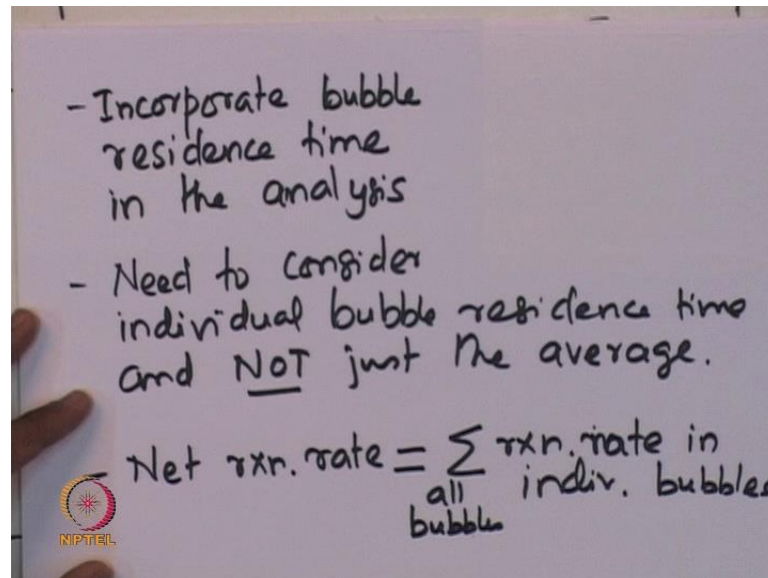 - Incorporate bubble
residence time
in the analysis
- Need to consider
individual bubble residence time
and NOT just the average.
- Net rxn. rate = ∑ rxn. rate in
all indiv. bubbles
bubbles
NPTEL